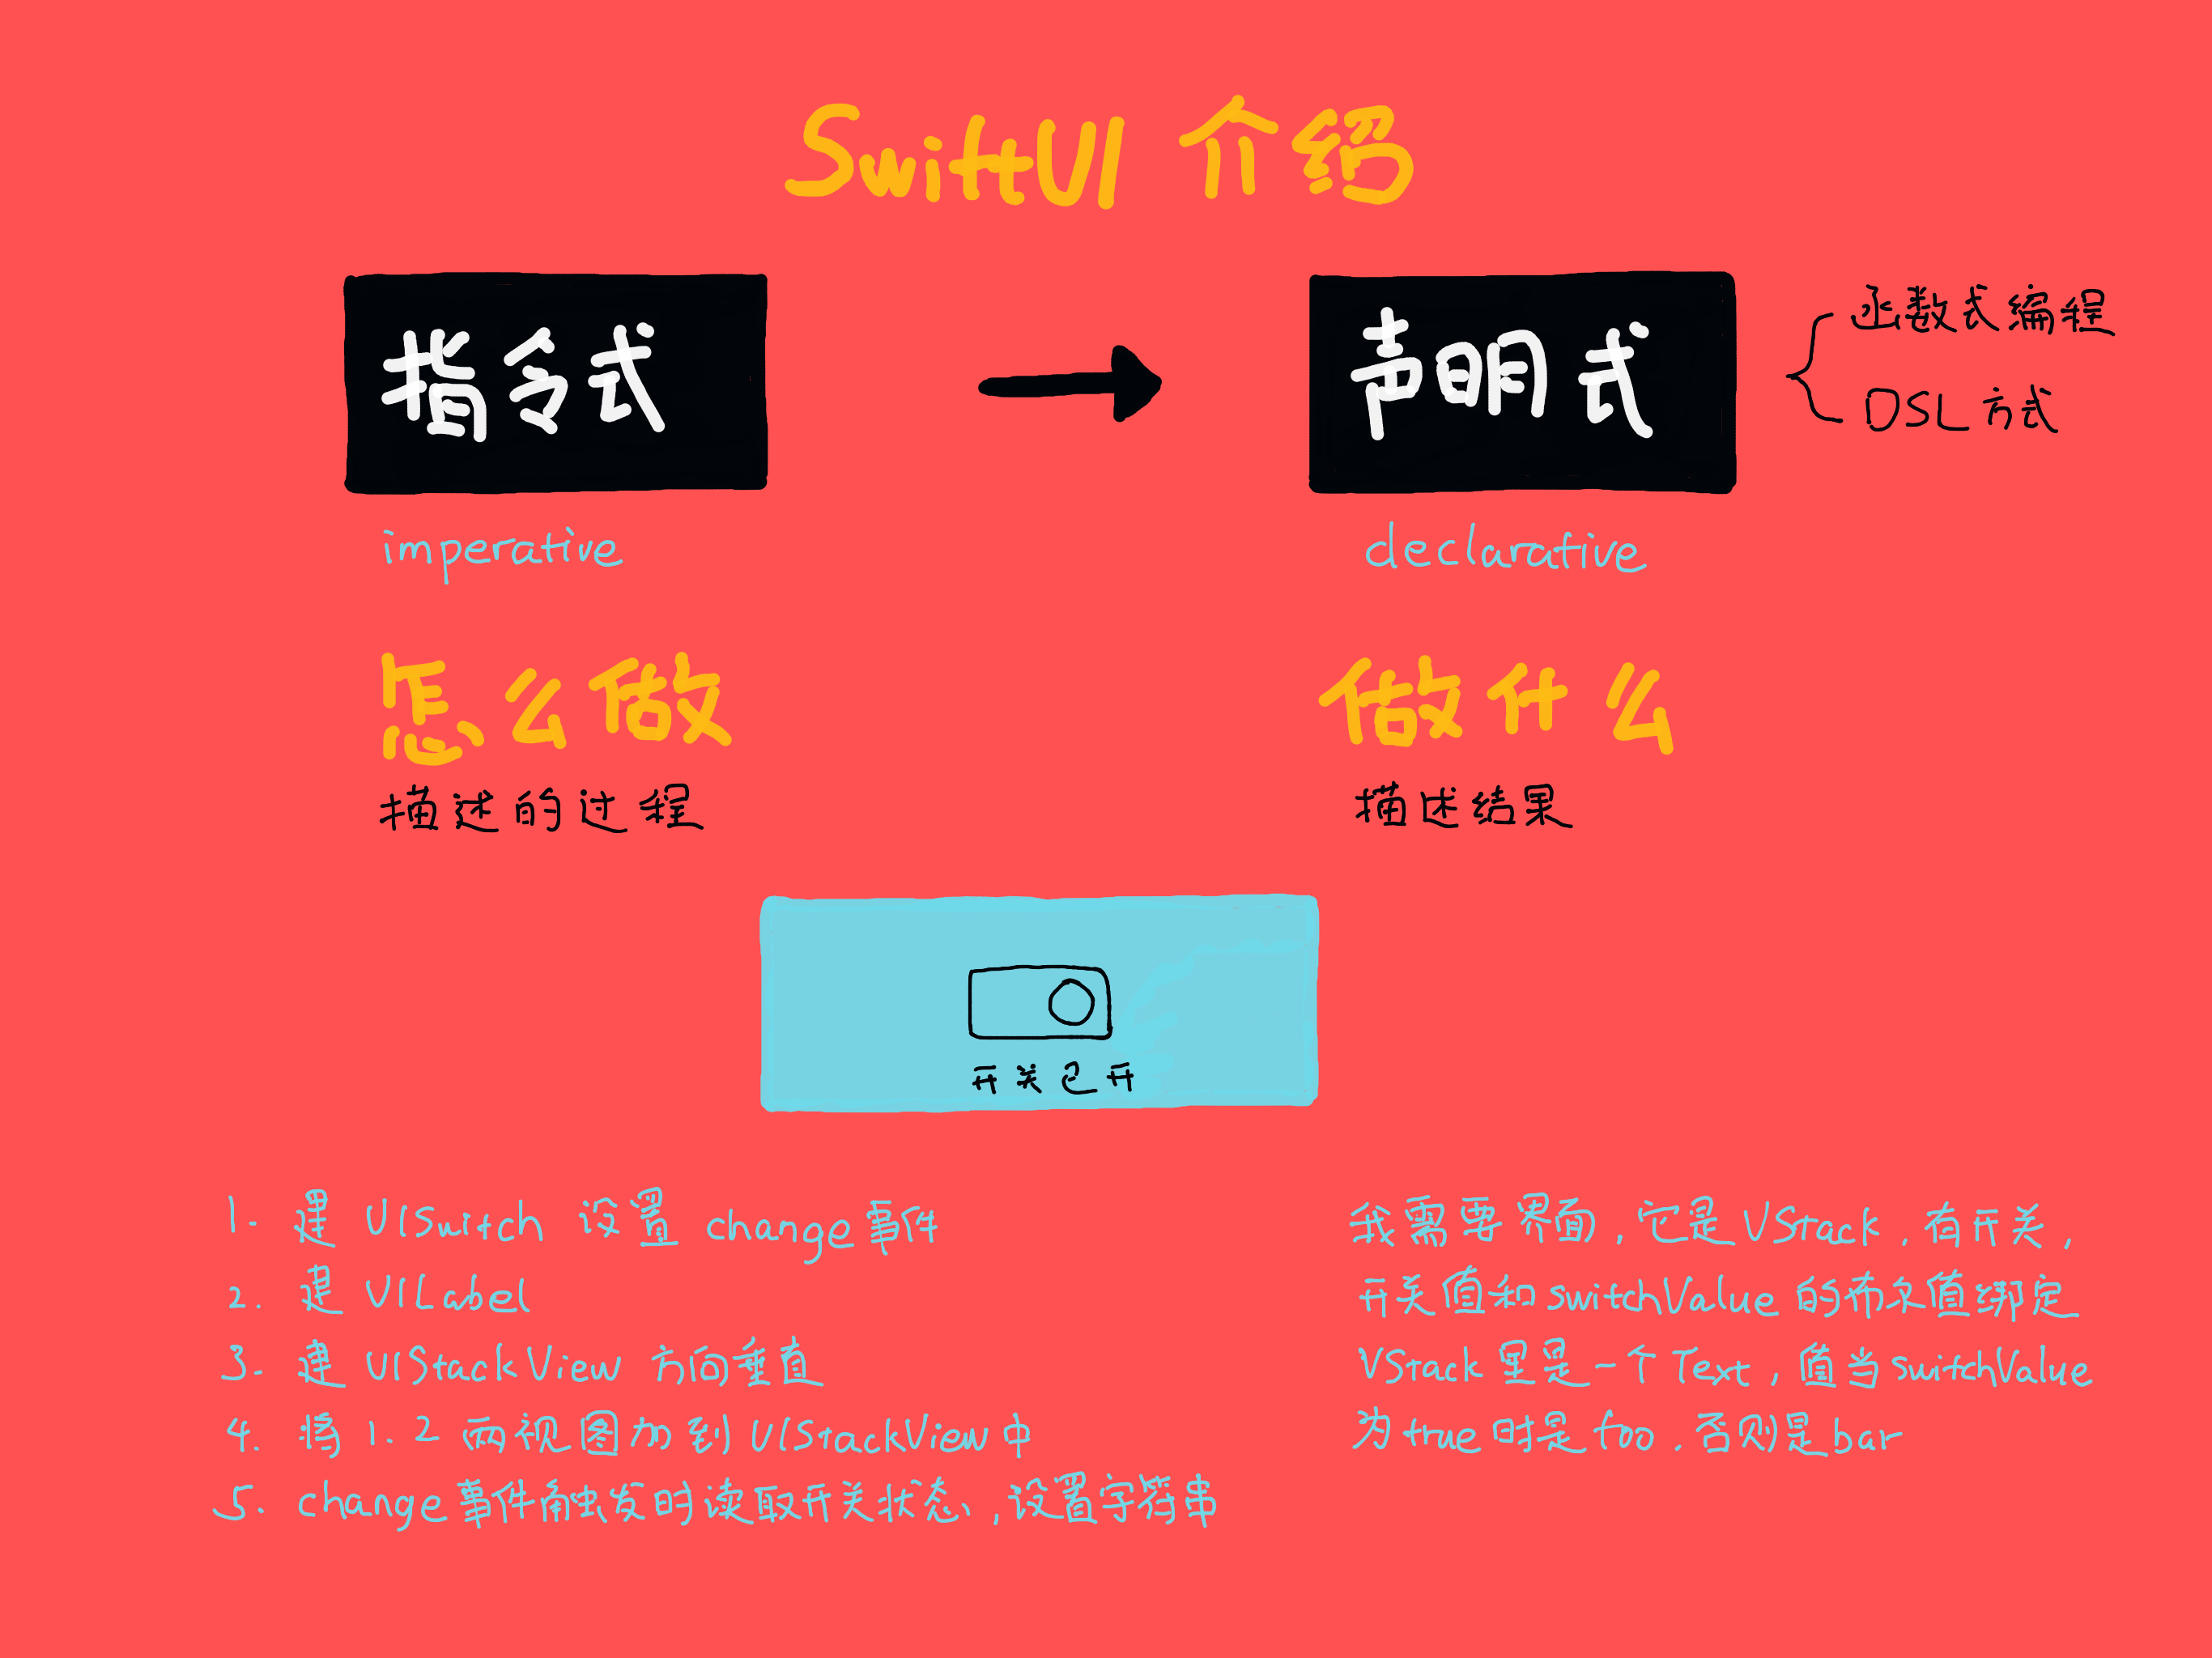 SwiftUI 介绍
指令式
声明式
函数式编程
DSL 方式
imperative
declarative
怎么做
做什么
描述的过程
描述结果
开关已开
1. 建 UISwitch 设置 change事件
2. 建 UILabel
3. 建 UIStackView 方向垂直
4. 将 1.2 两视图加到 UIStackView 中
5. change事件触发时读取开关状态,设置字符串
我需要界面,它是 VStack,有开关,
开关值和switchValue的布尔值绑定
VStack里是一个Text,值当switchValue
为true时是foo,否则是bar